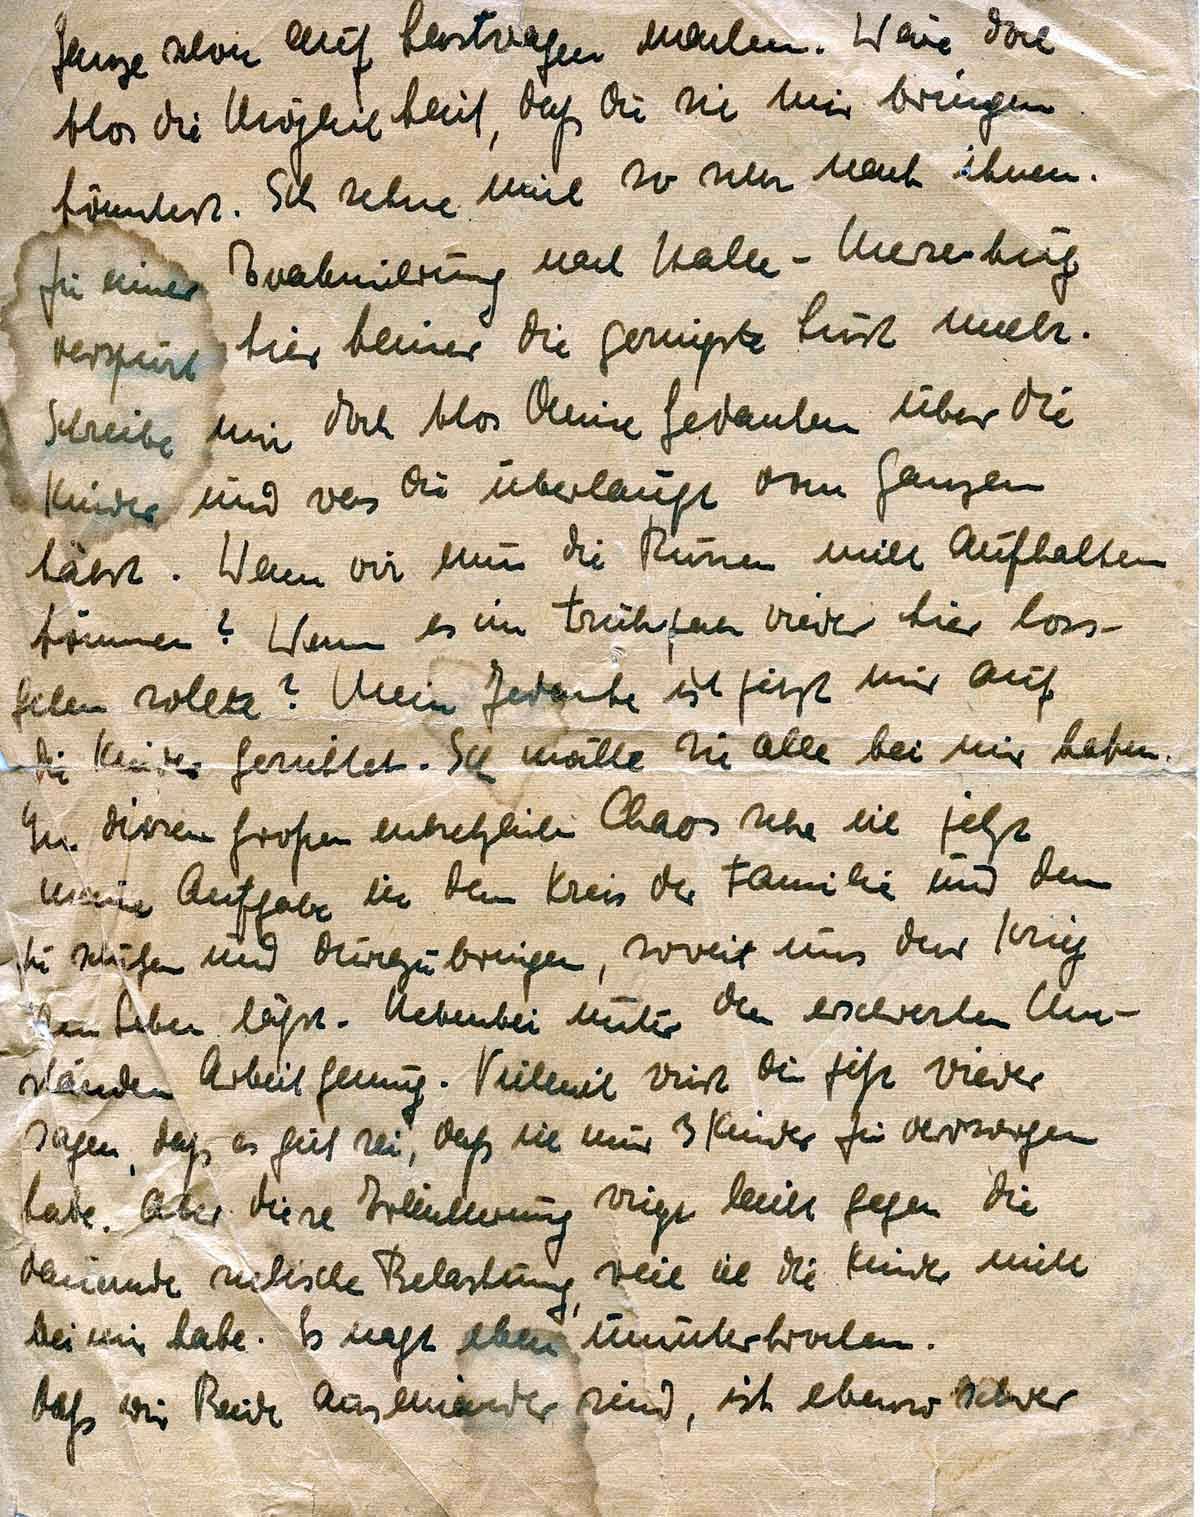 Ganze schon auf Lastwagen machen. Wäre doch
blos die Möglichkeit, daß du sie mir bringen
könntest. Ich sehne mich so sehr nach ihnen.
Zu einer Evakuierung nach Halle-Merseburg
verspürt hier keiner die geringste Lust mehr.
Schreibe mir doch blos Deine Gedanken über die
Kinder und was du überhaupt vom Ganzen
hälst. Wenn wir nun die Russen nicht aufhalten
können? Wenn es im Frühjahr wieder hier loss-
gehen sollte? Mein Gedanke ist jetzt nur auf
die Kinder gerichtet. Ich möchte sie alle bei mir haben.
In diesem großen entsetzlichen Chaos sehe ich jetzt
meine Aufgabe in dem Kreis der Familie und dem
zu schützen und durchzubringen, soweit uns der Krieg
am Leben läßt. Nebenbei unter den erschwerten Um-
ständen Arbeit genug. Vielleicht wirst du jetzt wieder
sagen, daß es gut sei, daß ich nur 3 Kinder zu versorgen
habe. Aber diese Erleichterung wiegt nicht gegen die
dauernde seelische Belastung, weil ich die Kinder nicht
bei mir habe. Es nagt eben ununterbrochen.
Daß wir Beide auseinander sind, ist ebenso schwer